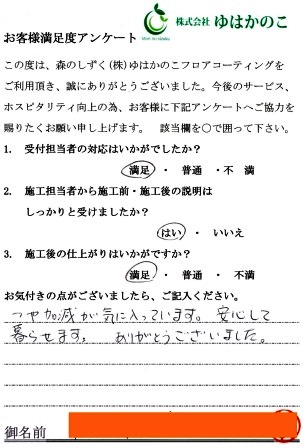 株式会社 ゆはかのこ
お客様満足度アンケート
この度は、森のしずく(株)ゆはかのこフロアコーティングを
ご利用頂き、誠にありがとうございました。今後のサービス、
ホスピタリティ向上の為、お客様に下記アンケートへご協力を
賜りたくお願い申し上げます。 該当欄を〇で囲って下さい。
1. 受付担当者の対応はいかがでしたか?
満足 ・ 普通 ・不 満
2. 施工担当者から施工前・施工後の説明は
しっかりと受けましたか?
はい ・ いいえ
3. 施工後の仕上がりはいかがですか?
満足 ・ 普通 ・ 不満
お気付きの点がございましたら、ご記入ください。
つや加減が気に入っています。安心して
暮らせます。 ありがとうございました。
御名前